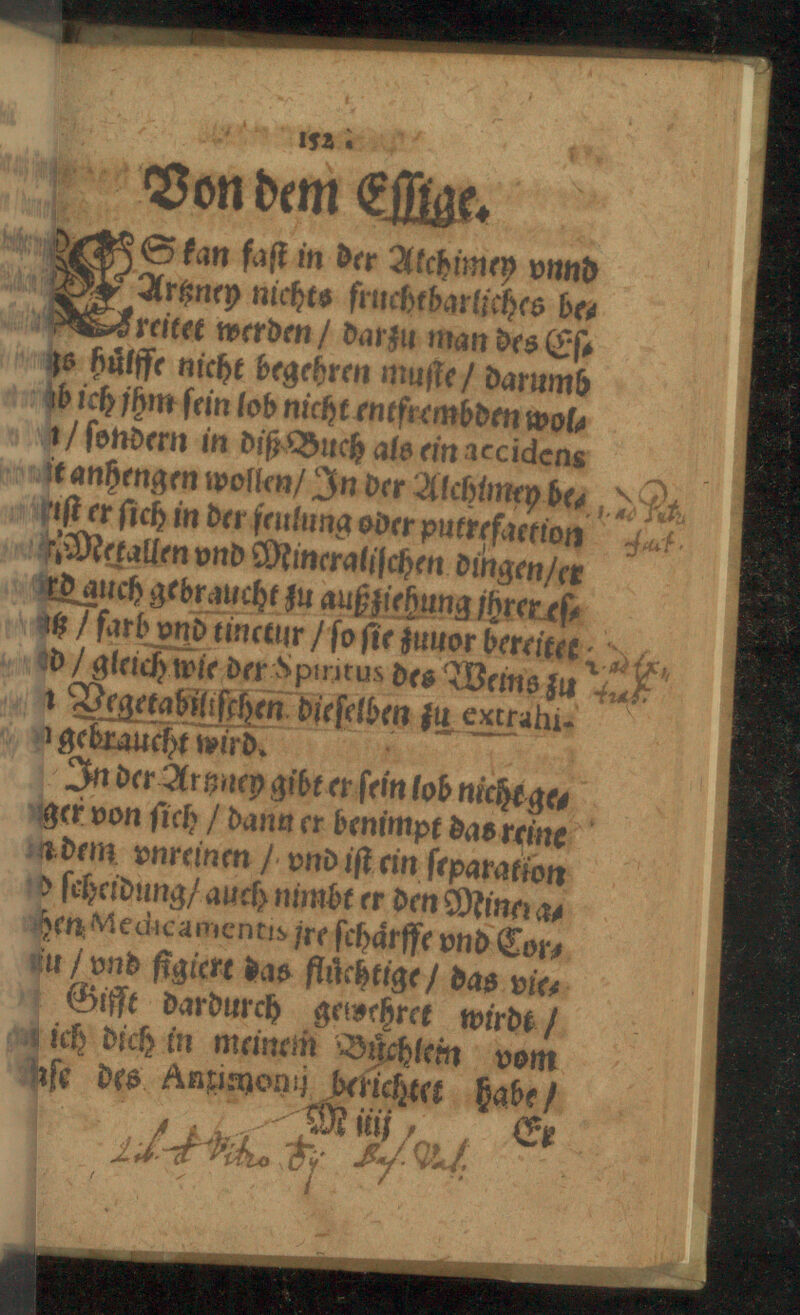 152
Von dem Essige.
ES kan fast in der Alchimey vnnd
Artzney nichts fruchtbarliches be⸗
reitet werden / darzu man des Es⸗
hülffe nicht begehren muste / darumb
ich jhm sein lob nicht entfrembden wol⸗
/ sondern in diß Buch als ein accidens
anhengen wollen / In der Alchimey be⸗
ist er sich in der feulung oder putrefaction
Metallen vnd Mineralischen dingen / er
auch gebraucht zu außziehung jhrer es⸗
/ farb vnd tinctur / so sie zuuor bereitet
/ gleich wie der Spiritus des Weins zu
Vegetabilischen dieselben zu extrahi⸗
gebraucht wird.
In der Artzney gibt er sein lob nicht ge⸗
ger von sich / dann er benimpt das reine
dem vnreinen / vnd ist ein separation
scheidung / auch nimbt er den Minera⸗
hen Medicamentis jre schärffe vnd Cor⸗
/ vnd figiert das flüchtige / das vie⸗
Gifft dardurch gewehret wirdt /
ich dich in meinem Büchlein vom
des Antimonij berichtet habe /
M iiij Er